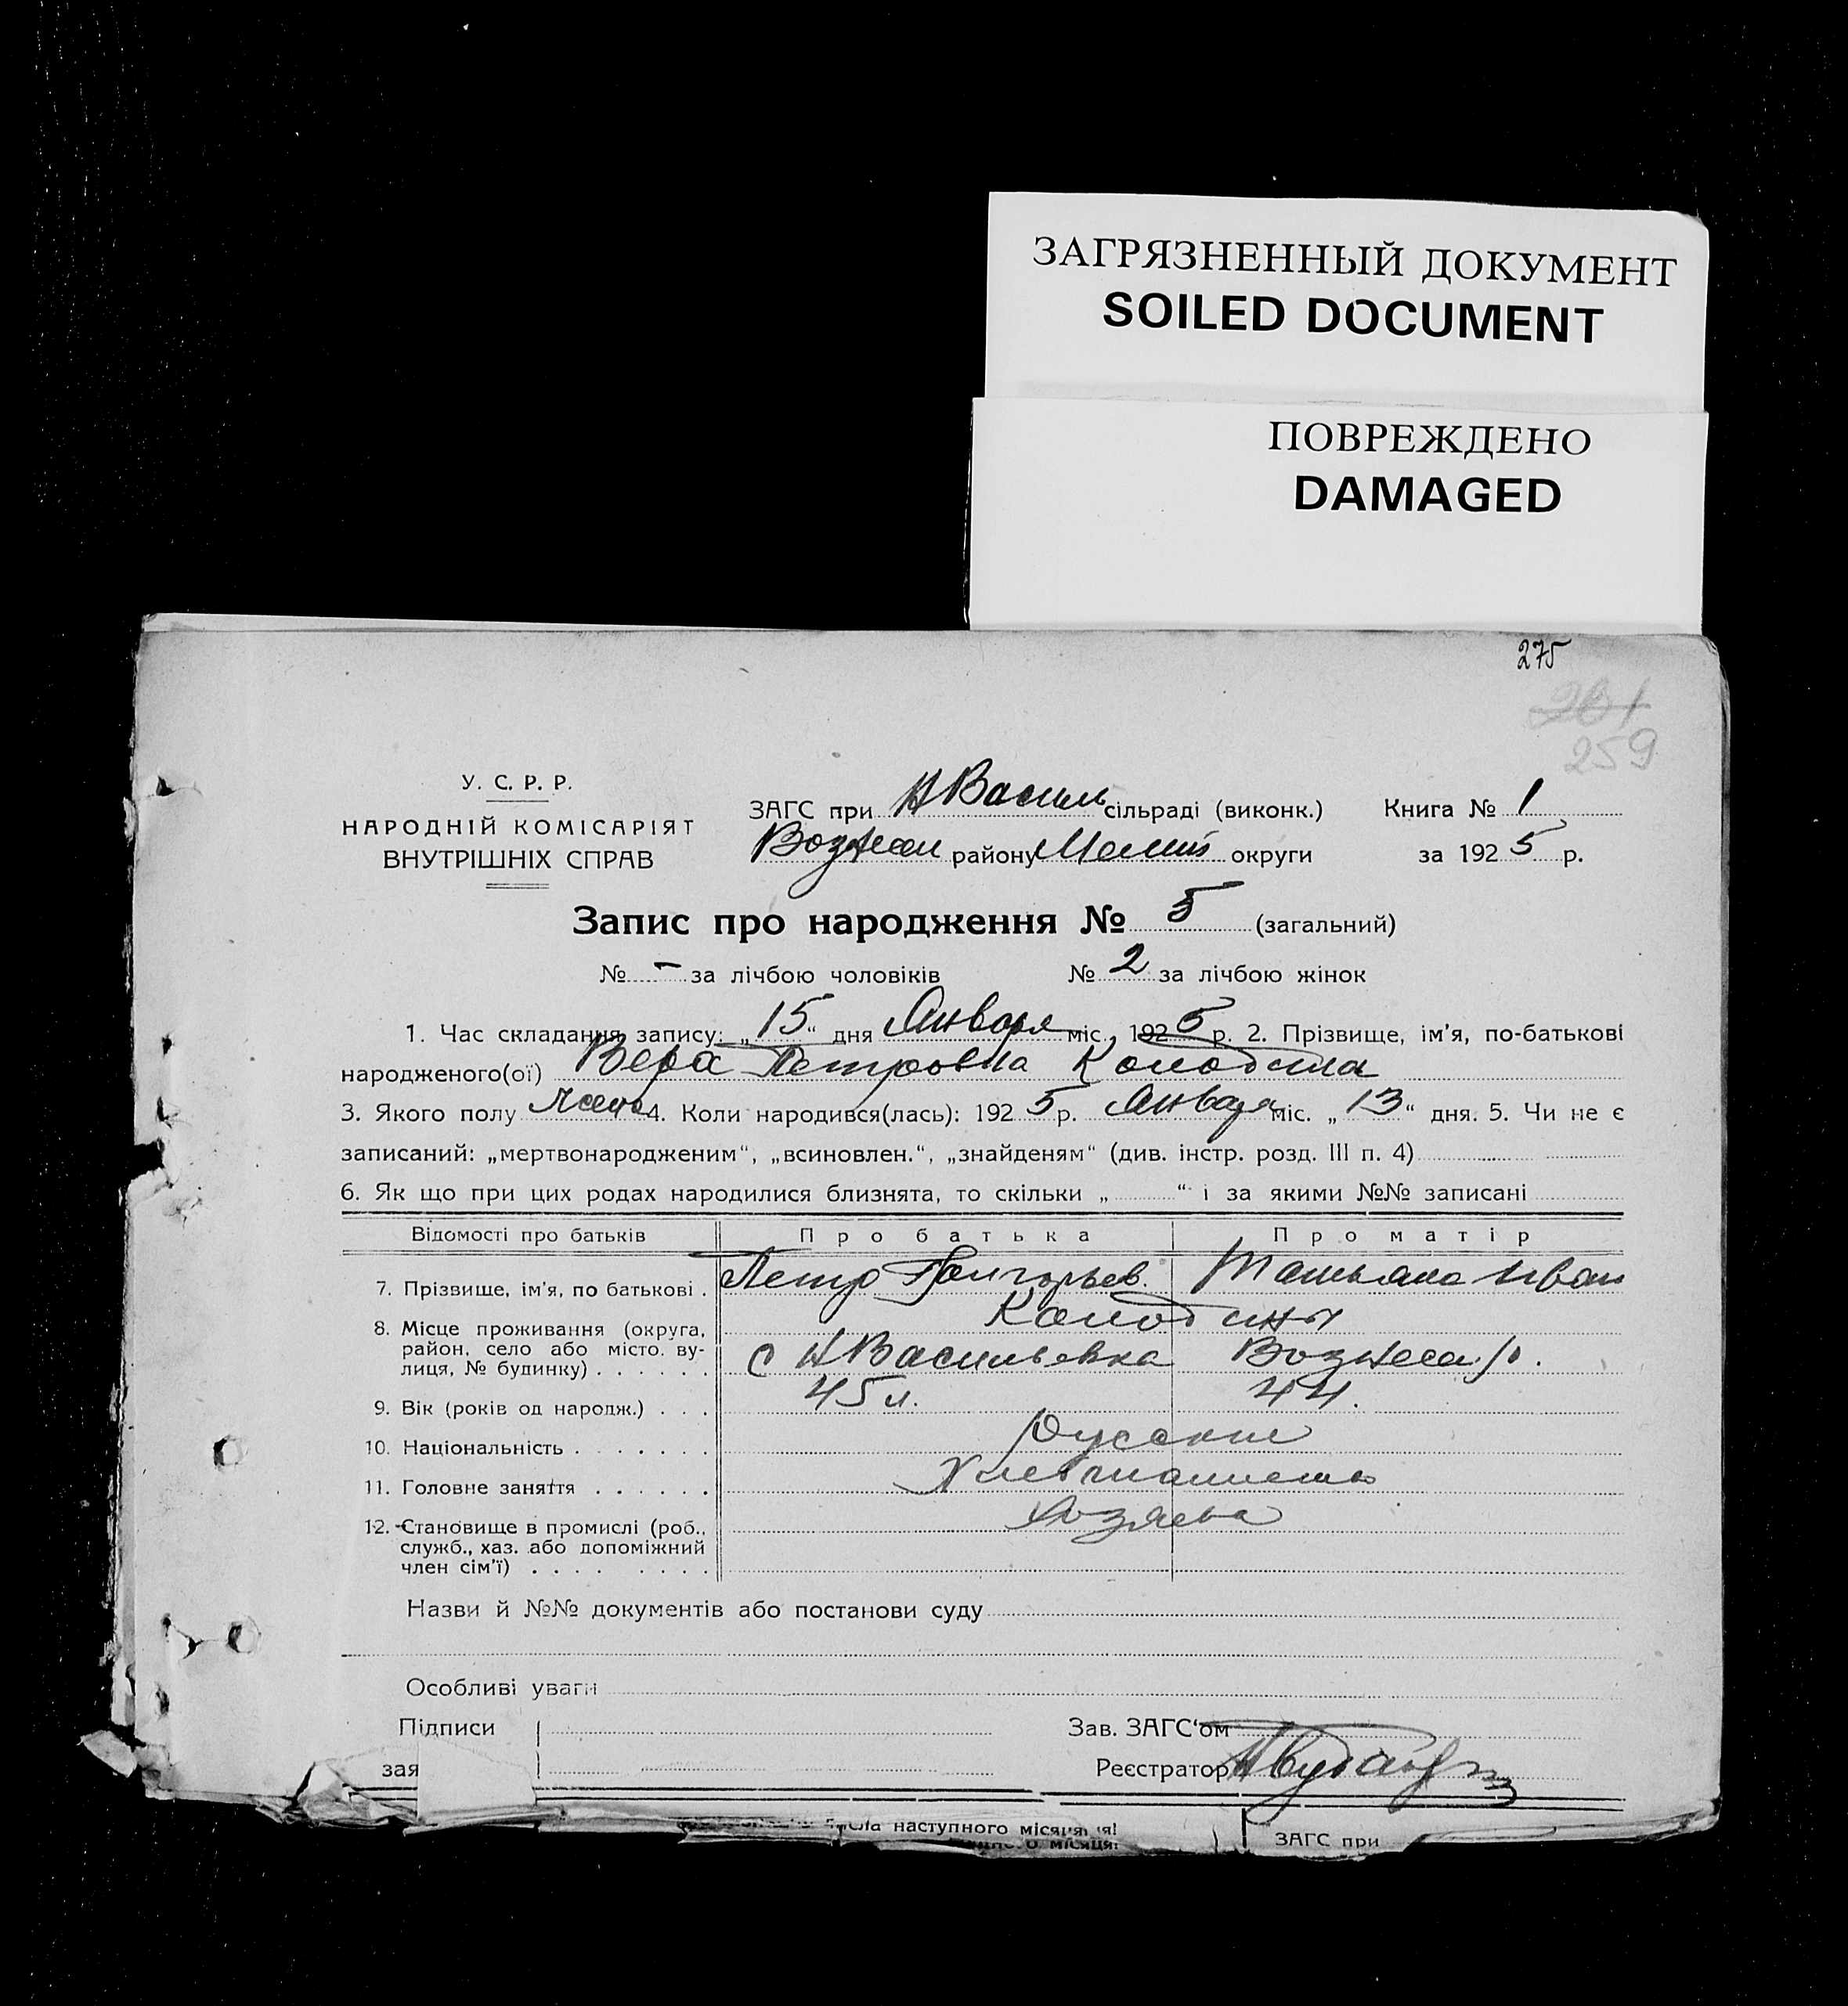 ЗАГРЯЗНЕННЫЙ ДОКУМЕНТ
SOILED DOCUMENT
ПОВРЕЖДЕНО
DAMAGED
275
261
259
У. С. Р. Р.
НАРОДНІЙ КОМІСАРІЯТ
ВНУТРІШНІХ СПРАВ
ЗАГС при НВасиль сільраді (виконк.) Книга № 1
району округи за 1925 р.
Запис про народження № 5 (загальний)
№ - за лічбою чоловіків № 2 за лічбою жінок
1. Час складання запису: „15“ дня Января міс. 1925 р. 2. Прізвище, ім'я, по-батькові
народженого(ої) Вера Петровна Колодина
3. Якого полу женс 4. Коли народився(лась): 1925 р. Января міс. „13“ дня. 5. Чи не є
записаний: „мертвонародженим“, „всиновлен.“, „знайденям“ (див. інстр. розд. III п. 4)
6. Як що при цих родах народилися близнята, то скільки „ “ і за якими №№ записані
Відомості про батьків Про батька Про матір
7. Прізвище, ім'я, по батькові . Петр Григорьев. Татьяна Иван
Колодины
8. Місце проживання (округа,
район, село або місто, ву-
лиця, № будинку) . . . . . . с НВасильевка Вознесен. р.
9. Вік (років од народж.) . . . 45 л. 44.
10. Національність . . . . . . . Русские
11. Головне заняття . . . . . . Хлебопашест
12. Становище в промислі (роб., Хозяева
служб., хаз. або допоміжний
член сім'ї) . . . . . . . .
Назви й №№ документів або постанови суду
Особливі уваги
Підписи Зав. ЗАГС‘ом
зая Реєстратор
числа наступного місяця!
місяця!
ЗАГС при